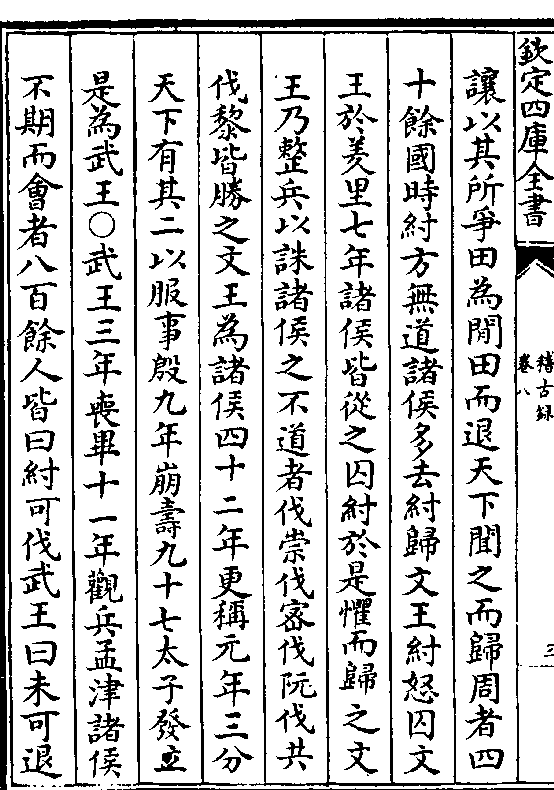 欽定四庫全書
稽古録
卷八
三
讓以其所爭田為閒田而退天下聞之而歸周者四
十餘國時紂方無道諸侯多去紂歸文王紂怒囚文
王於羑里七年諸侯皆從之囚紂於是懼而歸之文
王乃整兵以誅諸侯之不道者伐崇伐密伐阮伐共
伐黎皆勝之文王為諸侯四十二年更稱元年三分
天下有其二以服事殷九年崩壽九十七太子發立
是為武王○武王三年喪畢十一年觀兵孟津諸侯
不期而會者八百餘人皆曰紂可伐武王曰未可退